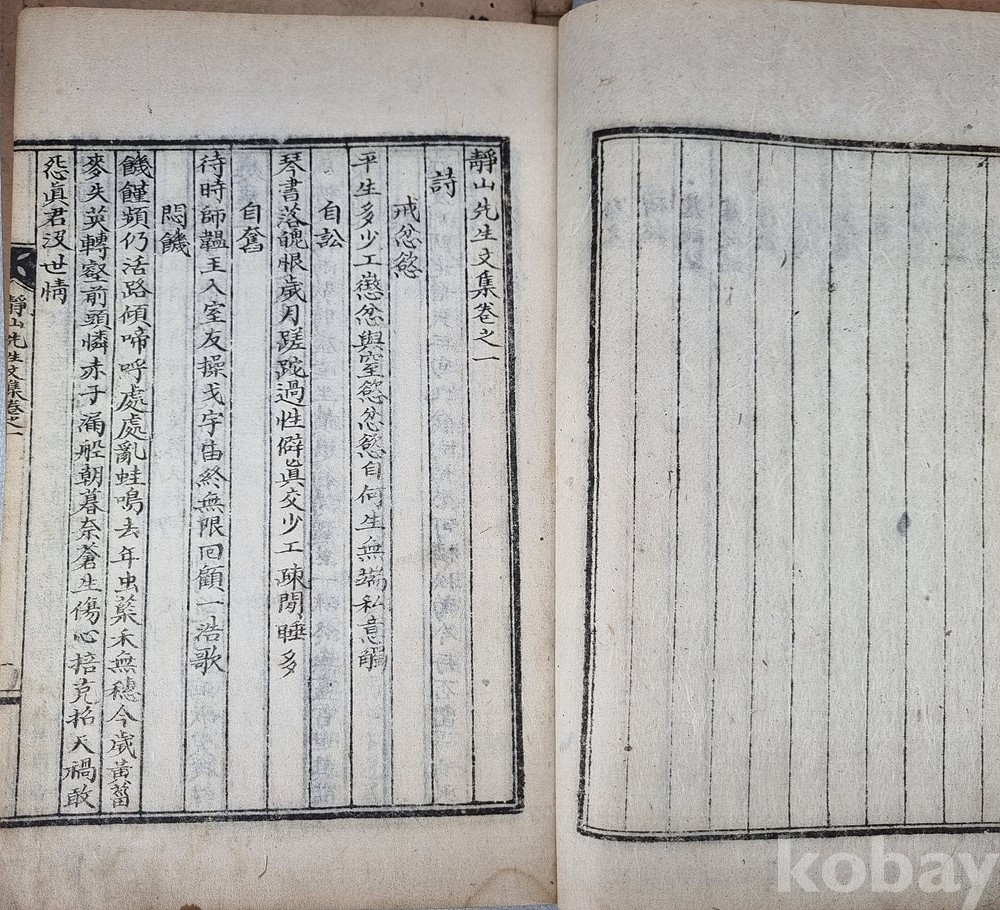 靜山先生文集卷之一
詩
戒忿慾
平生多少工懲忿與窒慾忿慾自何生無端私意觸
自訟
琴書落魄眼歲月蹉跎過性僻眞交少工疎閒睡多
自奮
待時師韞玉入室友操戈宇宙終無限回顧一浩歌
悶饑
饑饉頻仍活路傾啼呼處處亂蛙鳴去年虫蘂禾無穗今歲黃葘
麥失英轉壑前頭憐赤子漏船朝暮奈蒼生傷心掊克招天禍敢
怨眞君沒世情
靜山先生文集卷之一
一
kobay